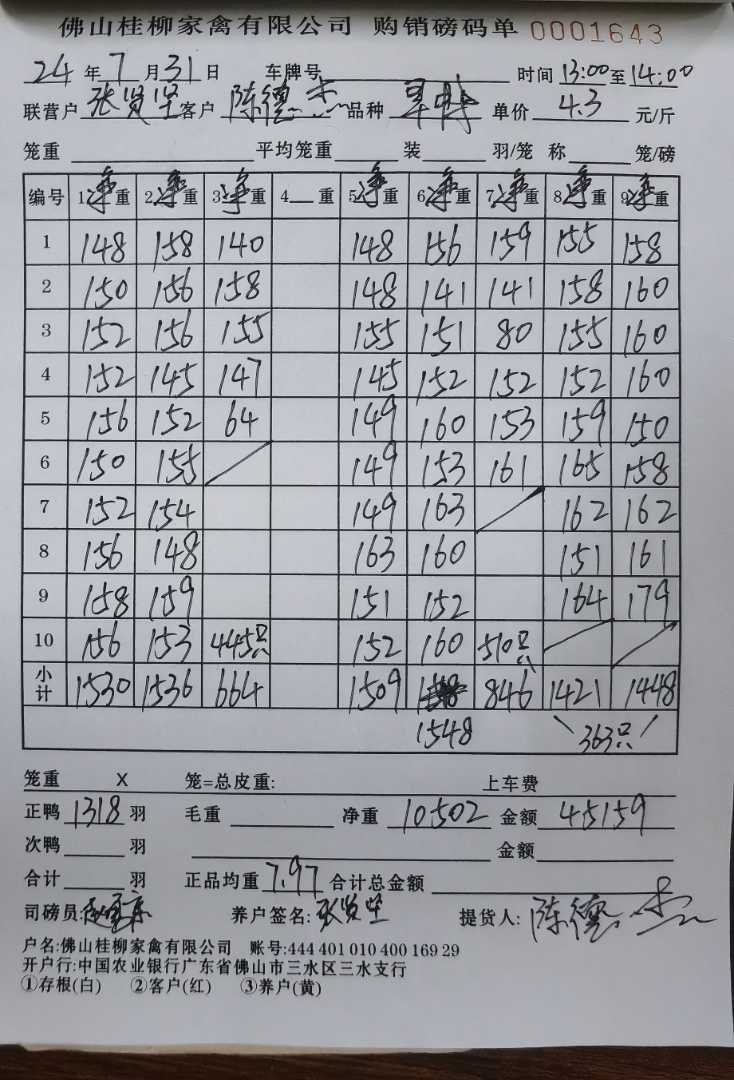 佛山桂柳家禽有限公司 购销磅码单 0001643
24 年 7 月 31 日 车牌号 时间 13:00 至 14:00
联营户 张贤坚 客户 陈德杰 品种 单价 4.3 元/斤
笼重 平均笼重 装 羽/笼 称 笼/磅
编号 1净重 2净重 3净重 4 重 5净重 6净重 7净重 8净重 9净重
1 148 158 140 148 156 159 155 158
2 150 156 158 148 141 141 158 160
3 152 156 155 155 151 80 155 160
4 152 145 147 145 152 152 152 160
5 156 152 64 149 160 153 159 150
6 150 155 149 153 161 165 158
7 152 154 149 163 162 162
8 156 148 163 160 151 161
9 158 159 151 152 164 179
10 156 153 445只 152 160 510只
小计 1530 1536 664 1509 846 1421 1448
1548 363只
笼重 X 笼=总皮重: 上车费
正鸭 1318 羽 毛重 净重 10502 金额 45159
次鸭 羽 金额
合计 羽 正品均重 7.97 合计总金额
司磅员: 养户签名: 张贤坚 提货人: 陈德杰
户名:佛山桂柳家禽有限公司 账号:444 401 010 400 169 29
开户行:中国农业银行广东省佛山市三水区三水支行
①存根(白) ②客户(红) ③养户(黄)